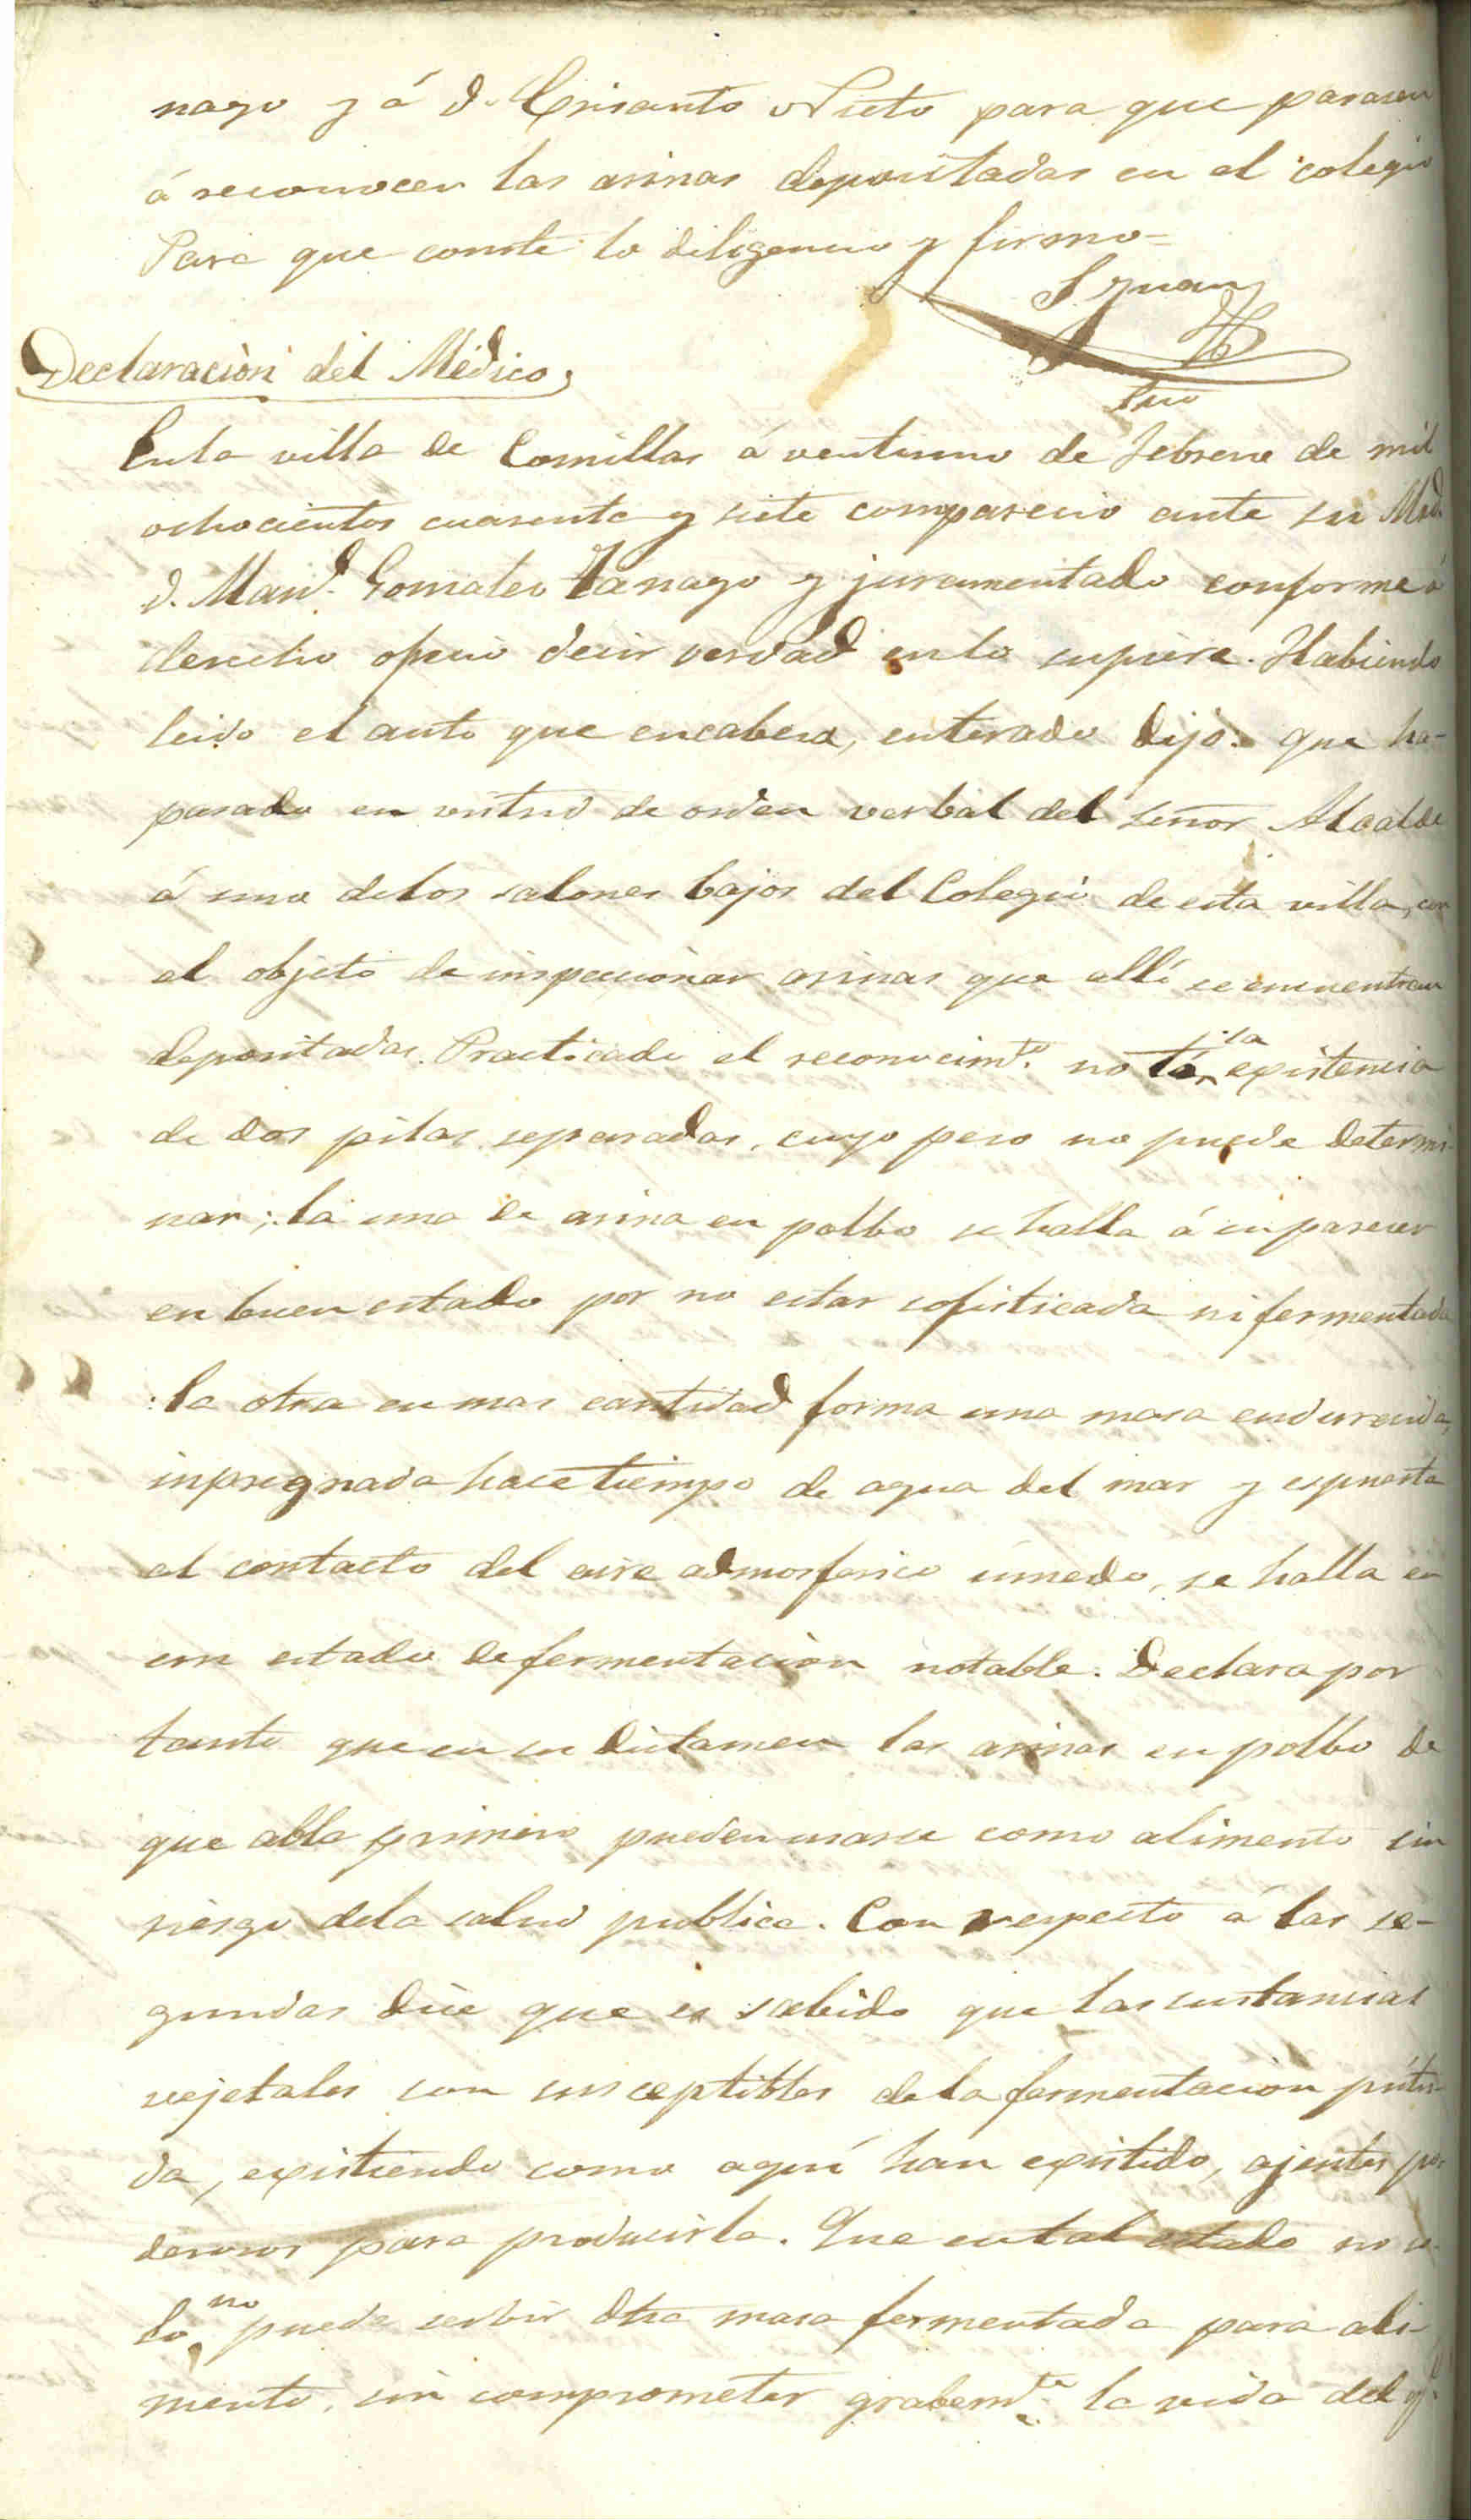 nago y á D. Crisanto Nieto para que pasasen
á reconocer las arinas depositadas en el colegio
Para que conste lo diligencio y firmo-
Declaraciòn del Médico,
En la villa de Comillas á ventiuno de Febrero de mil
ochocientos cuarenta y siete comparecio ante su Mrd.
D. Man.l Gonzalez Tanago y juramentado conforme á
derecho ofrecio decir verdad en lo supiere. Habiendo
leido el auto que encabeza, enterado dijo: que ha-
pasado en virtud de orden verbal del señor Alcalde
á uno delos salones bajos del Colegio de esta villa, con
el objeto de inspeccionar arinas que allí se encuentran
depositadas. Practicado el reconocim.to notó la existencia
de dos pilas separadas, cuyo peso no puede determi-
nar; la una de arina en polbo se halla á su parecer
en buen estado por no estar sofisticada ni fermentada
: la otra en mas cantidad forma una masa endurecida,
inpregnada hace tiempo de agua del mar y espuesta
al contacto del aire admosferico úmedo, se halla en
un estado de fermentaciòn notable. Declara por
tanto que en su dictamen las arinas en polbo de
que abla primero pueden usarse como alimento sin
riesgo dela salud publica. Con respecto á las se-
gundas dice que es sabido que las sustancias
vejetales son susceptibles dela fermentaciòn pútri-
da, existiendo como aquí han existido, ajentes po-
derosos para producirla. Que en tal estado no so-
lo no puede serbir dha masa fermentada para ali-
mento, sin comprometer grabem.te la vida del q.e